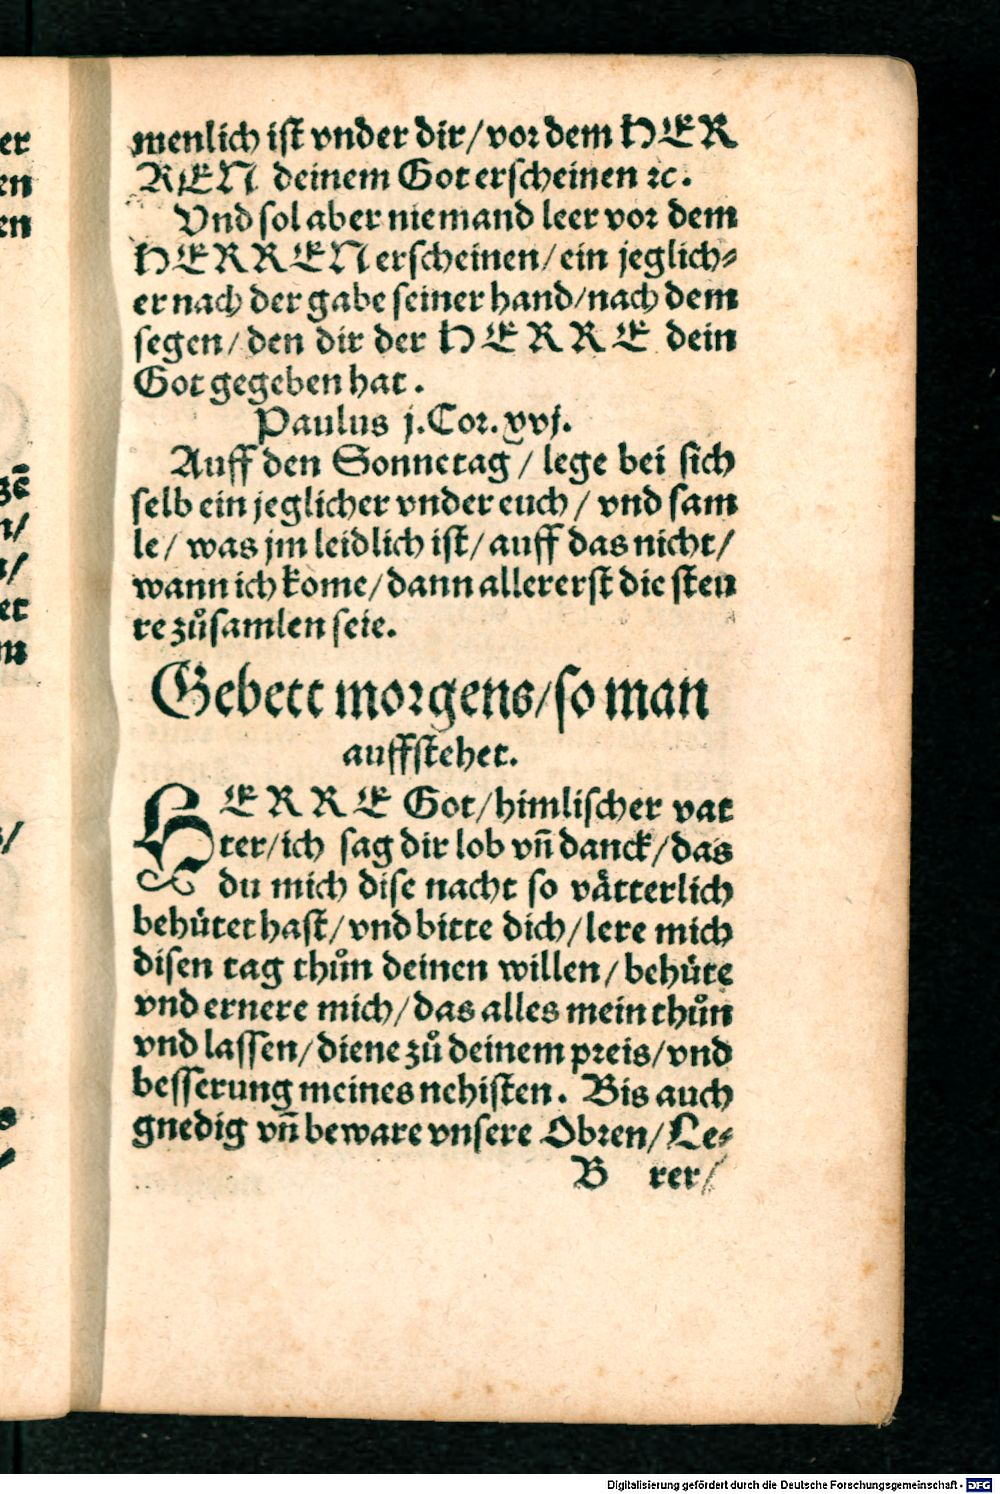 menlich ist vnder dir/vor dem HER
REN deinem Got erscheinen ꝛc.
Vnd sol aber niemand leer vor dem
HERREN erscheinen/ein jeglich⸗
er nach der gabe seiner hand/nach dem
segen/den dir der HERRE dein
Got gegeben hat.
Paulus j.Cor.xvj.
Auff den Sonnetag/lege bei sich
selb ein jeglicher vnder euch/vnd sam
le/was jm leidlich ist/auff das nicht/
wann ich kome/dann allererst die steu
re zůsamlen seie.
Gebett morgens/so man
auffstehet.
HERRE Got/himlischer vat
ter/ich sag dir lob vn̄ danck/das
du mich dise nacht so vätterlich
behütet hast/vnd bitte dich/lere mich
disen tag thůn deinen willen/behüte
vnd ernere mich/das alles mein thůn
vnd lassen/diene zů deinem preis/vnd
besserung meines nehisten. Bis auch
gnedig vn̄ beware vnsere Obren/Le⸗
B rer/
er
en
en
zē
n/
/
et
m
/
s
/
Digitalisierung gefördert durch die Deutsche Forschungsgemeinschaft - DFG